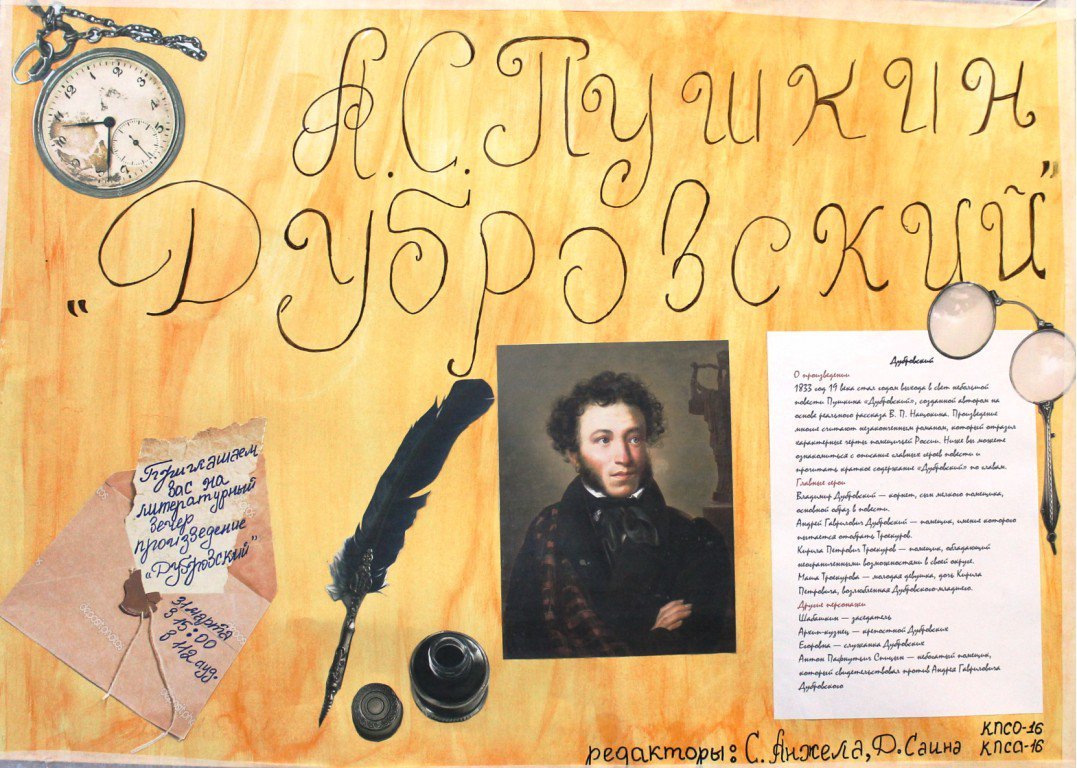 А.С.Пушкин
„Дубровский"
Приглашаем
вас на
литературный
вечер
произведение
„Дубровский"
31 марта
в 15:00
в 112 ауд.
Дубровский
О произведении
1833 год 19 века стал годом выхода в свет небольшой
повести Пушкина «Дубровский», созданной автором на
основе реального рассказа В. П. Нащокина. Произведение
многие считают незаконченным романом, который отразил
характерные черты помещичьей России. Ниже вы можете
ознакомиться с описание главных героев повести и
прочитать краткое содержание «Дубровский» по главам.
Главные герои
Владимир Дубровский — корнет, сын мелкого помещика,
основной образ в повести.
Андрей Гаврилович Дубровский — помещик, имение которого
пытается отобрать Троекуров.
Кирила Петрович Троекуров — помещик, обладающий
неограниченными возможностями в своей округе.
Маша Троекурова — молодая девушка, дочь Кирила
Петровича, возлюбленная Дубровского-младшего.
Другие персонажи
Шабашкин — заседатель
Архип-кузнец — крепостной Дубровских
Егоровна — служанка Дубровских
Антон Пафнутьич Спицын — небогатый помещик,
который свидетельствовал против Андрея Гавриловича
Дубровского
редакторы: С. Анжела, Д. Саина
КПСО-16
КПСО-16